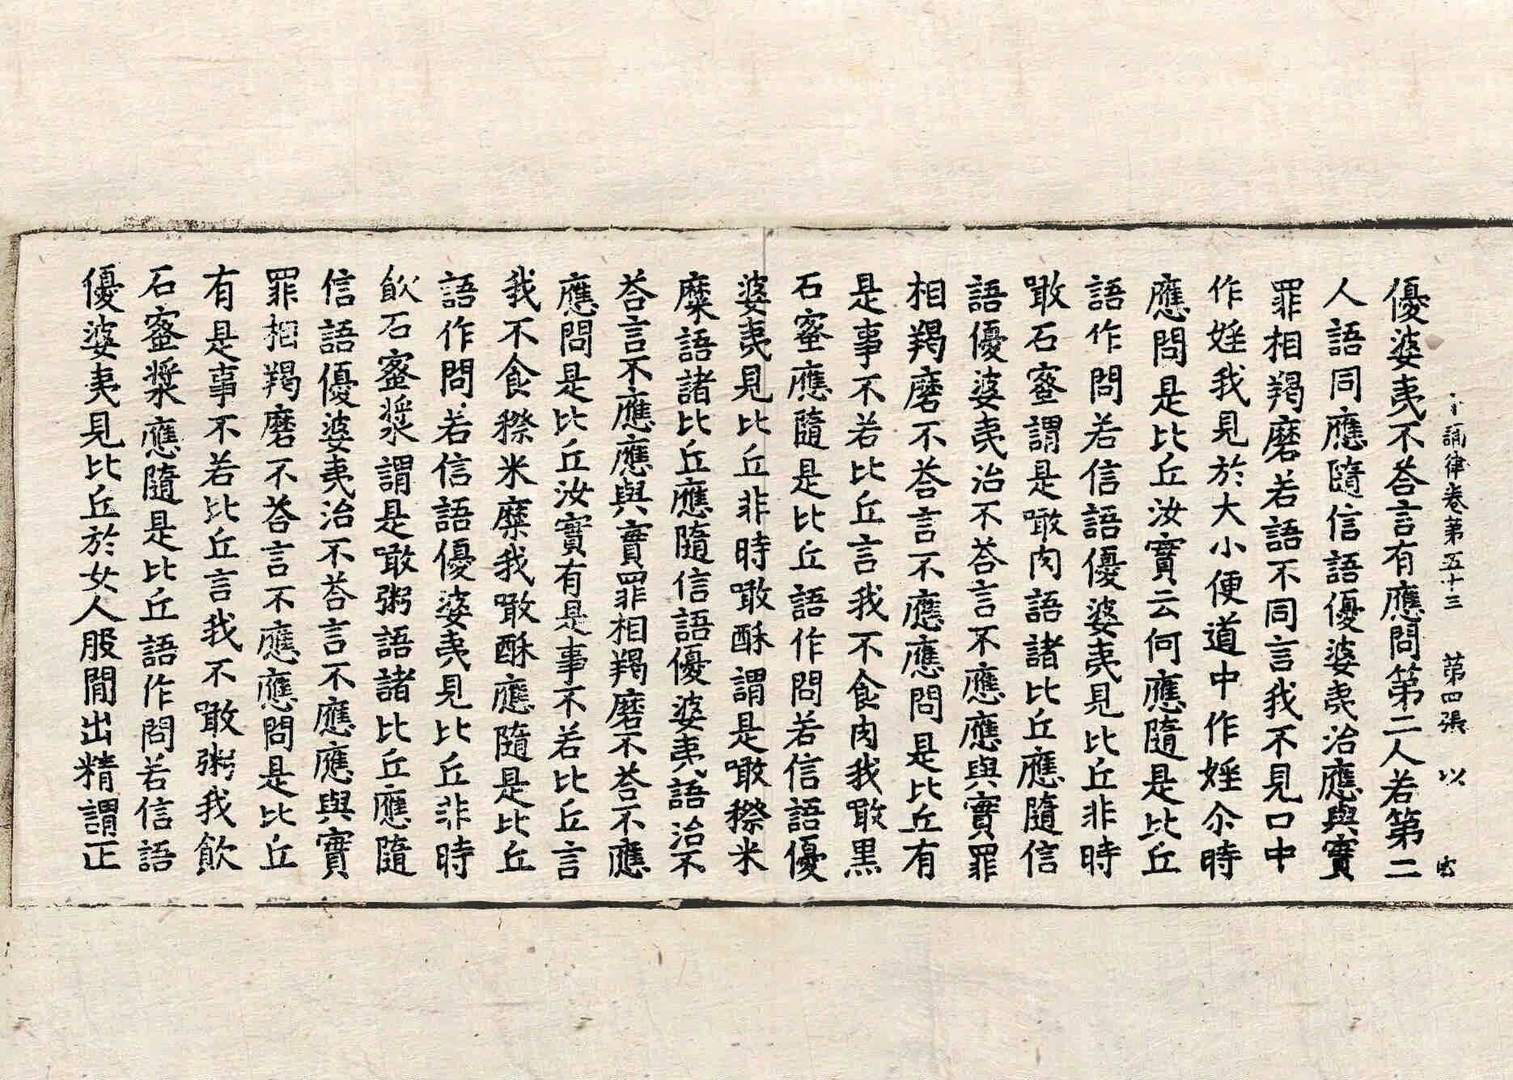 十誦律卷第五十三 第四張 以
優婆夷不荅言有應問第二人若第二
人語同應隨信語優婆夷治應與實
罪相羯磨若語不同言我不見口中
作婬我見於大小便道中作婬尒時
應問是比丘汝實云何應隨是比丘
語作問若信語優婆夷見比丘非時
噉石蜜謂是噉肉語諸比丘應隨信
語優婆夷治不荅言不應應與實罪
相羯磨不荅言不應應問是比丘有
是事不若比丘言我不食肉我噉黑
石蜜應隨是比丘語作問若信語優
婆夷見比丘非時噉酥謂是噉穄米
糜語諸比丘應隨信語優婆夷語治不
荅言不應應與實罪相羯磨不荅不應
應問是比丘汝實有是事不若比丘言
我不食穄米糜我噉酥應隨是比丘
語作問若信語優婆夷見比丘非時
飲石蜜漿謂是噉粥語諸比丘應隨
信語優婆夷治不荅言不應應與實
罪相羯磨不荅言不應應問是比丘
有是事不若比丘言我不噉粥我飲
石蜜漿應隨是比丘語作問若信語
優婆夷見比丘於女人股間出精謂正